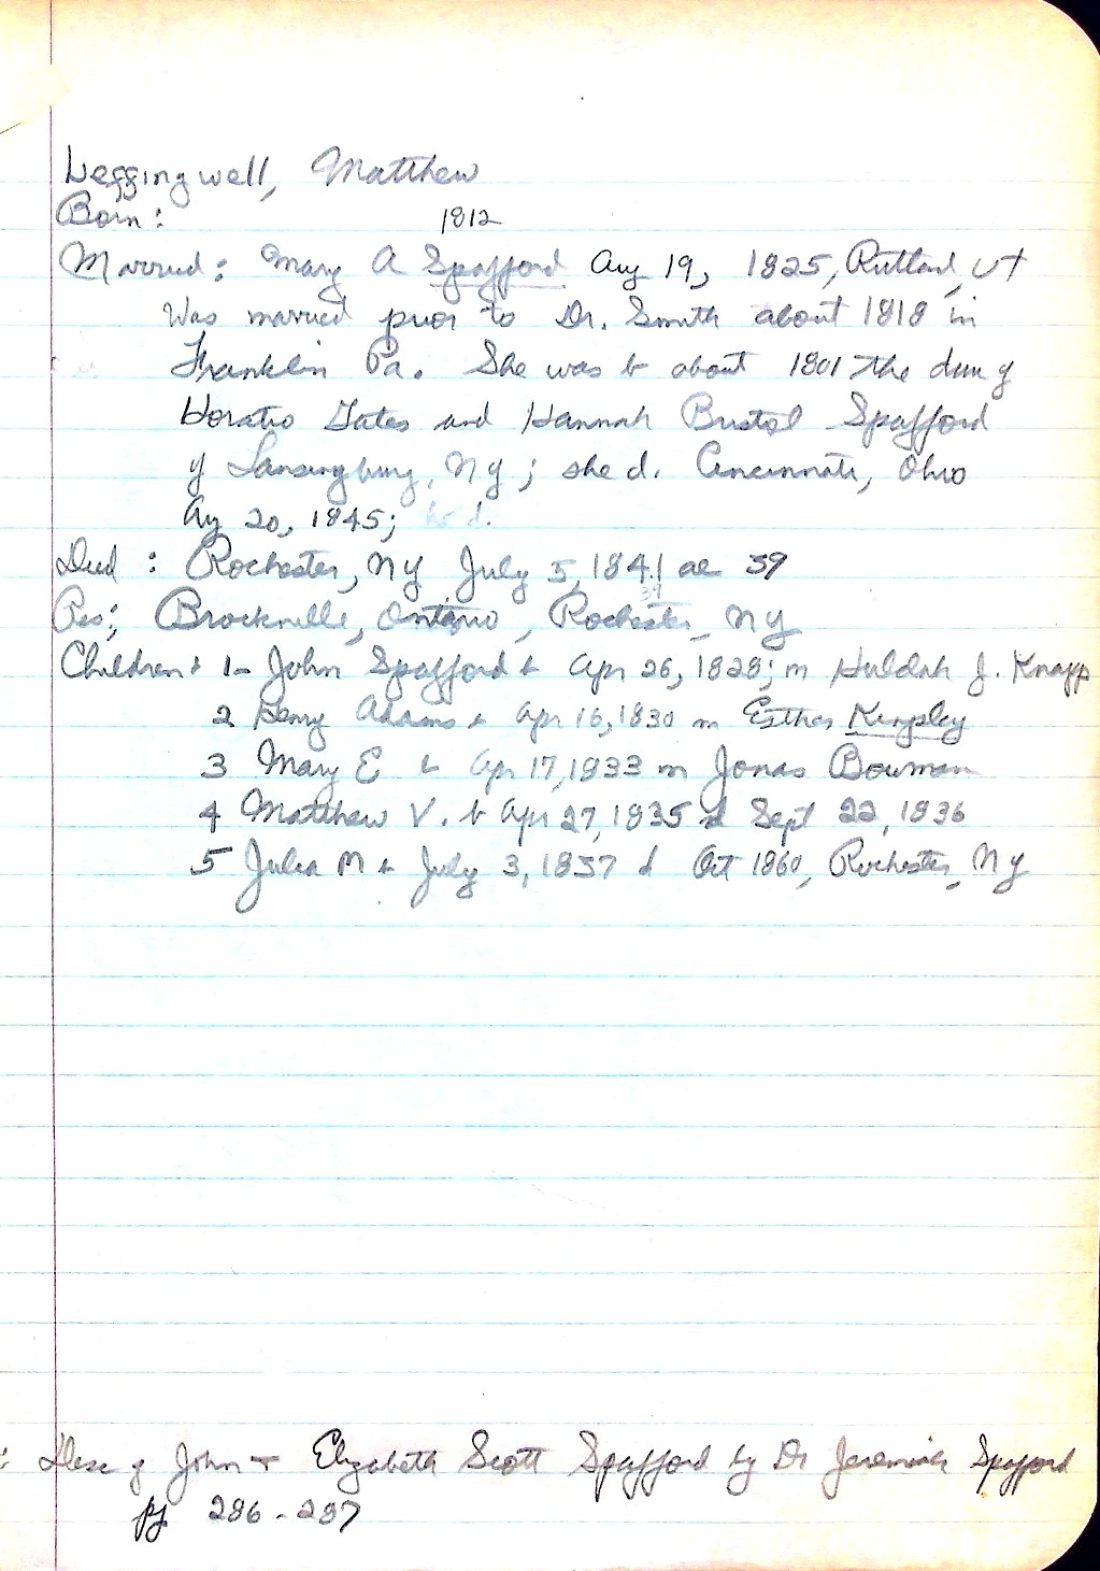 Leffingwell, Matthew
Born: 1812
Married: Mary A Spafford Aug 19, 1825, Rutland, Vt
Was married prior to Dr. Smith about 1818 in
Franklin Pa. She was b about 1801 the dau of
Horatio Gates and Hannah Bristol Spafford
of Lansingburg, NY; she d. Cincinnati, Ohio
Ag 20, 1845;
Died: Rochester, NY July 5, 1841 ae 39
Res: Brockville, Ontario, Rochester, NY
Children: 1- John Spafford b Apr 26, 1828; m Huldah J. Knapp
2 Henry Adams b Apr 16, 1830 m Esther Kingsley
3 Mary E b Apr 17, 1833 m Jonas Bowman
4 Matthew V. b Apr 27, 1835 d Sept 22, 1836
5 Julia M b July 3, 1837 d Oct 1860, Rochester, NY
: Desc of John + Elizabeth Scott Spafford by Dr Jeremiah Spafford
pg 286-287